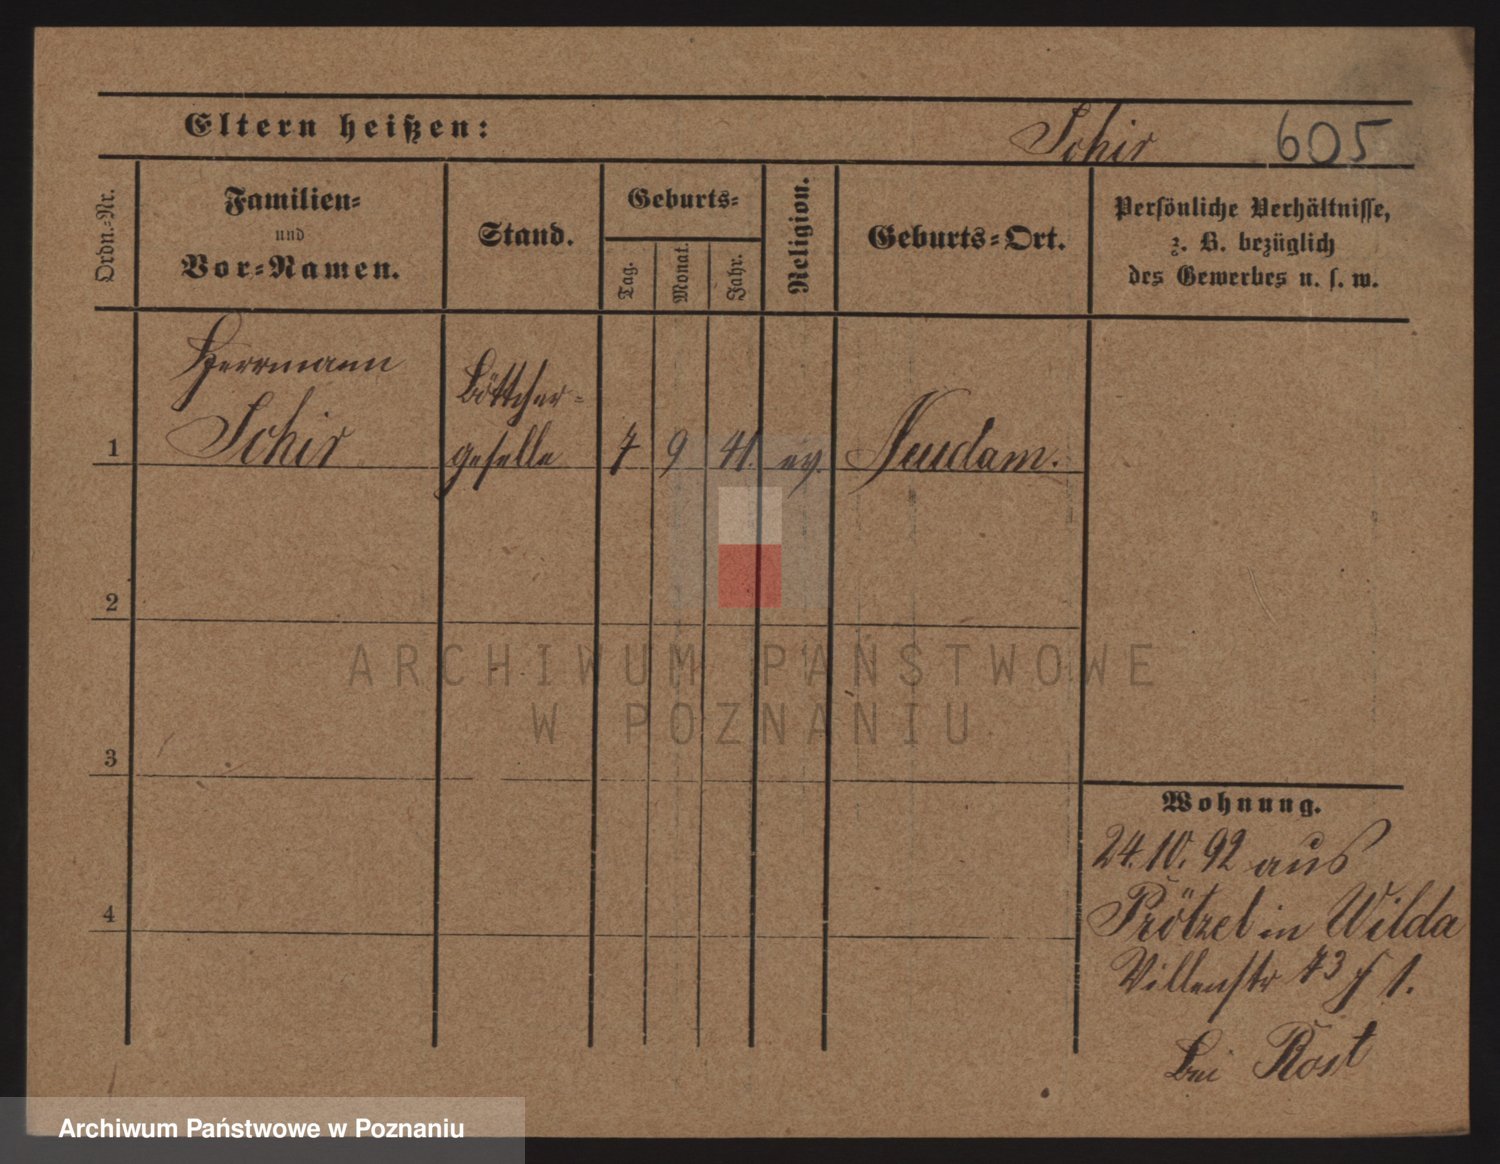 Eltern heißen: Schir 605
Ordn.-Nr.
Familien-
und
Vor-Namen.
Stand.
Geburts-
Tag. Monat. Jahr.
Religion.
Geburts-Ort.
Persönliche Verhältnisse,
z. B. bezüglich
des Gewerbes u. s. w.
Herrmann
Schir
Böttcher-
geselle
1 7 9 41. ev. Neudam.
2
3
4
ARCHIWUM PAŃSTWOWE
W POZNANIU
Wohnung.
24.10.92 aus
Prötzel in Wilda
Villenstr 73 1.
bei Rost
Archiwum Państwowe w Poznaniu